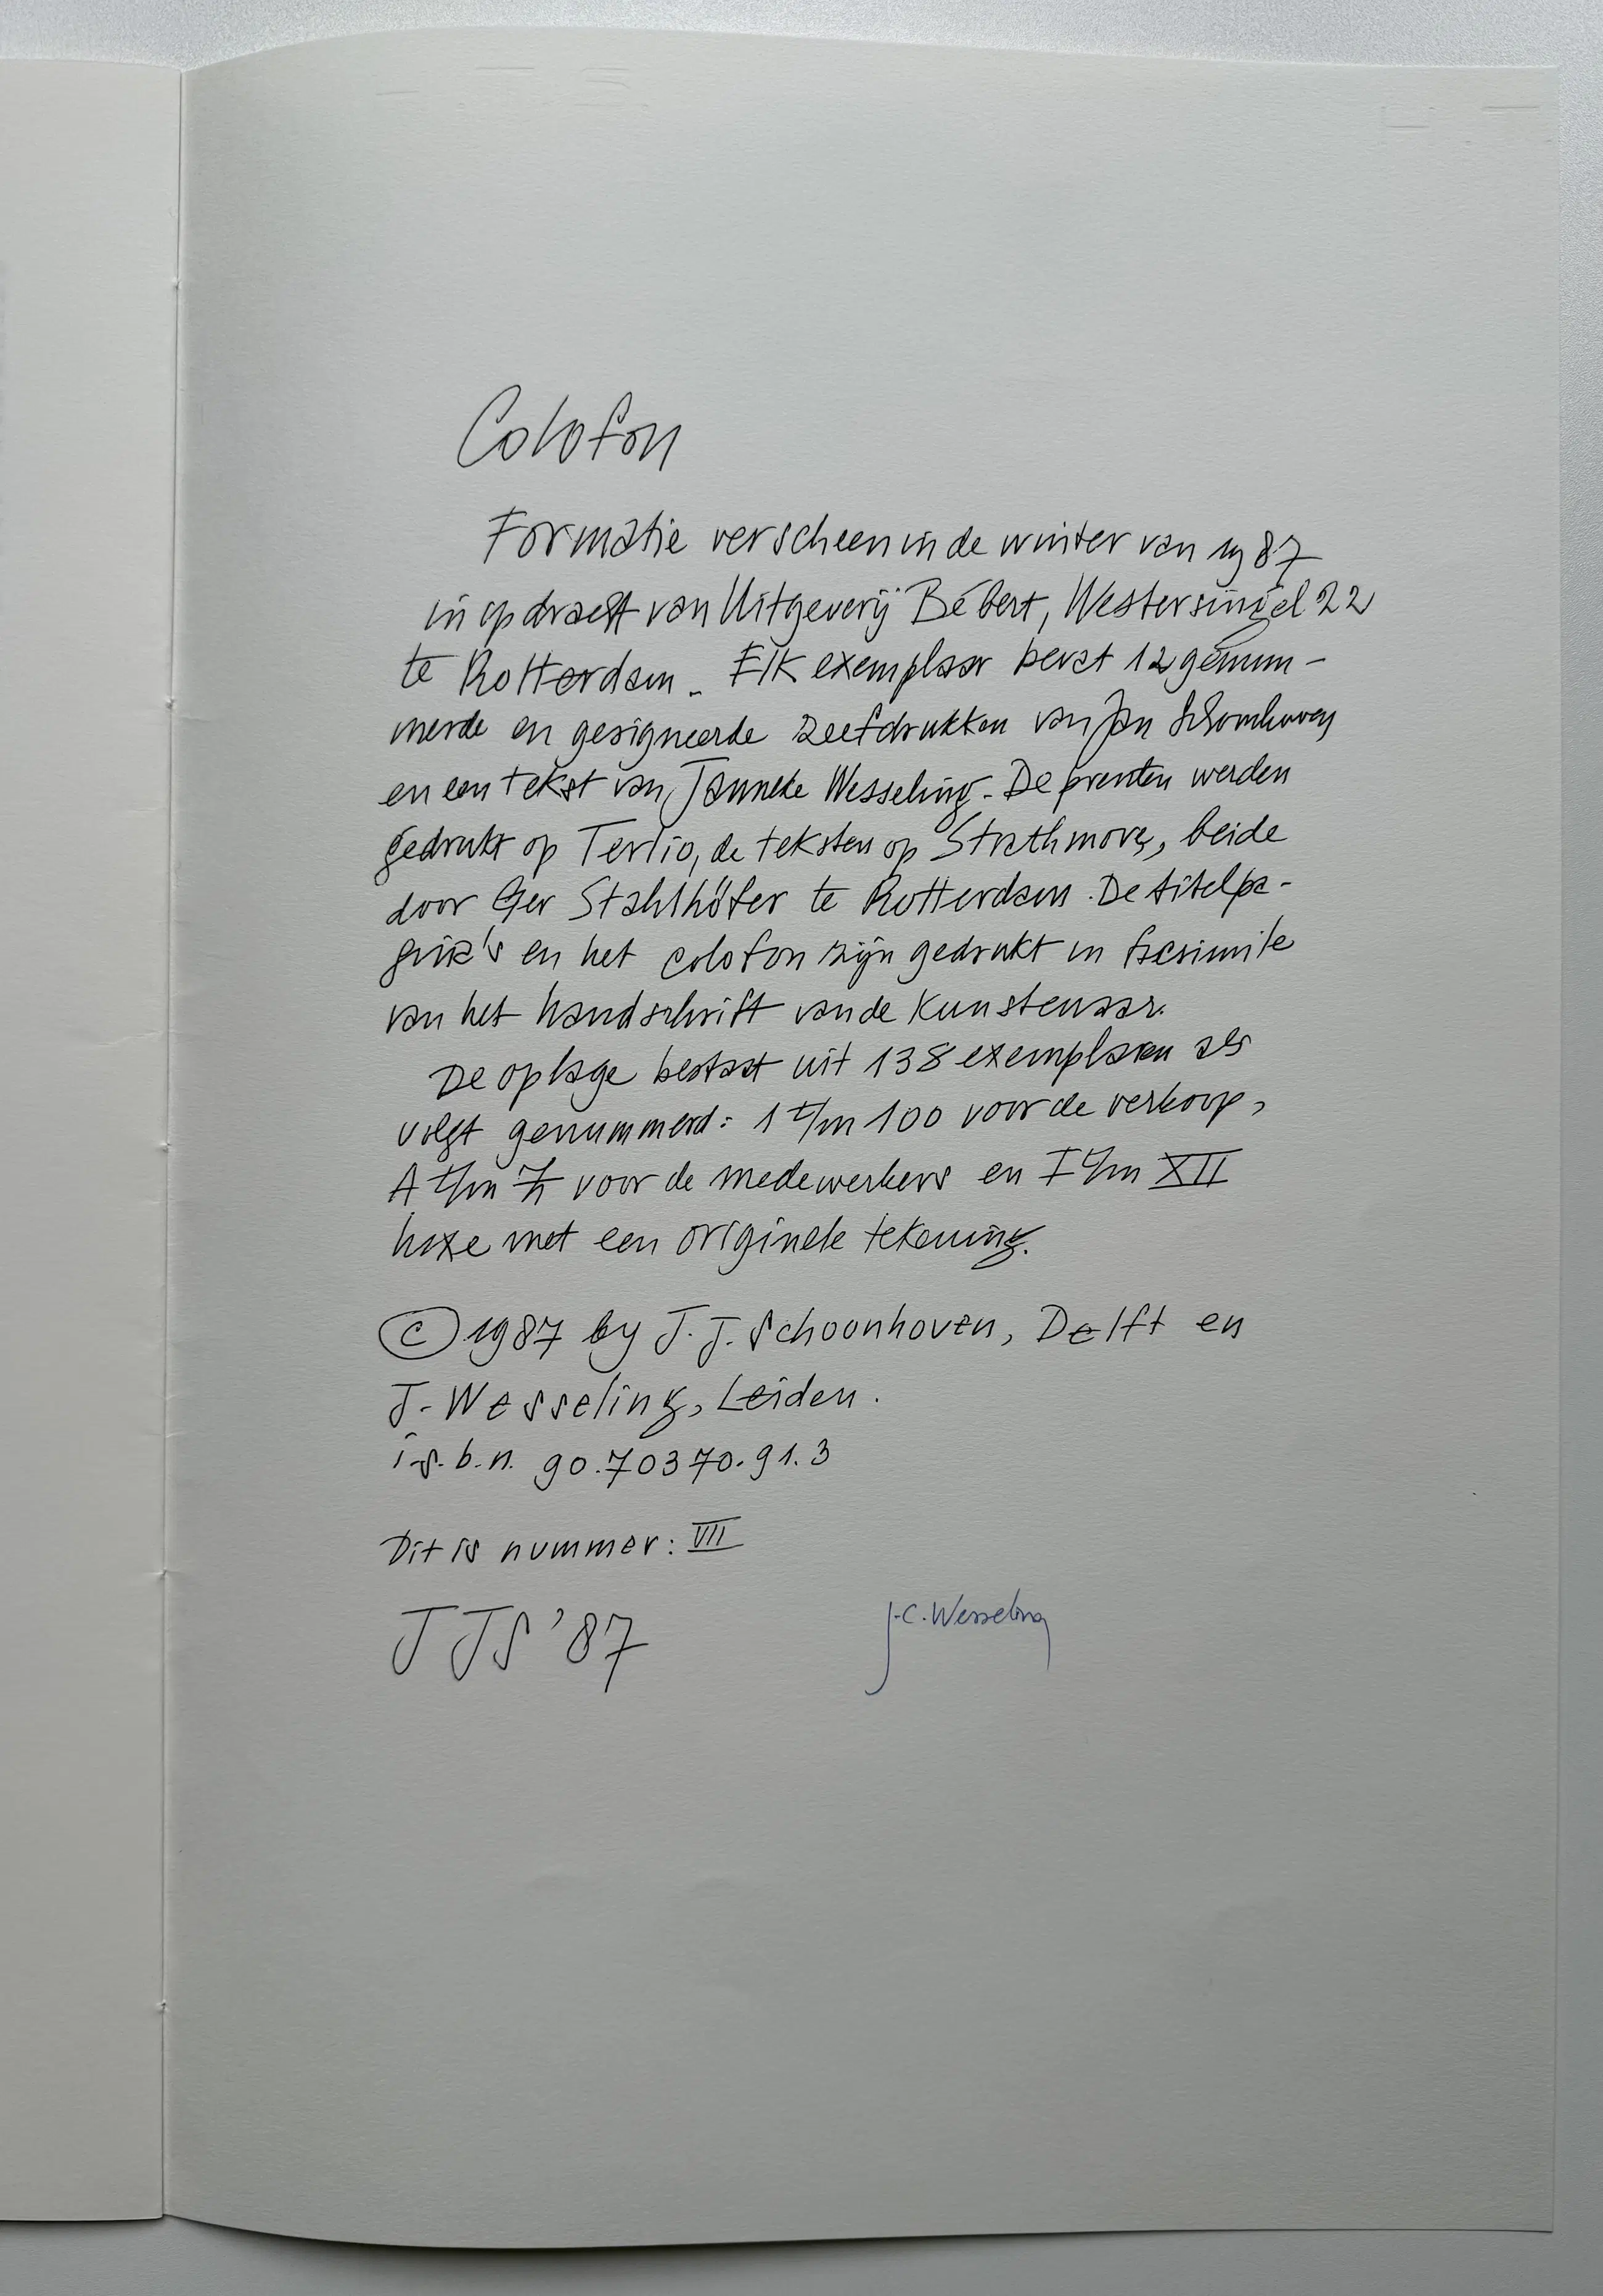 Colofon
Formatie verscheen in de winter van 1987
in opdracht van Uitgeverij Bébert, Westersingel 22
te Rotterdam. Elk exemplaar bevat 12 genum-
merde en gesigneerde zeefdrukken van Jan Schoonhoven
en een tekst van Janneke Wesseling. De prenten werden
gedrukt op Tertio, de teksten op Strathmore, beide
door Ger Stahlhöfer te Rotterdam. De titelpa-
gina's en het colofon zijn gedrukt in facsimile
van het handschrift van de Kunstenaar.
De oplage bestaat uit 138 exemplaren als
volgt genummerd: 1 t/m 100 voor de verkoop,
A t/m Z voor de medewerkers en I t/m XII
luxe met een originele tekening.
© 1987 by J. J. Schoonhoven, Delft en
J. Wesseling, Leiden.
i.s.b.n. 90.70370.91.3
Dit is nummer: VII
JJS '87
J.C. Wesseling